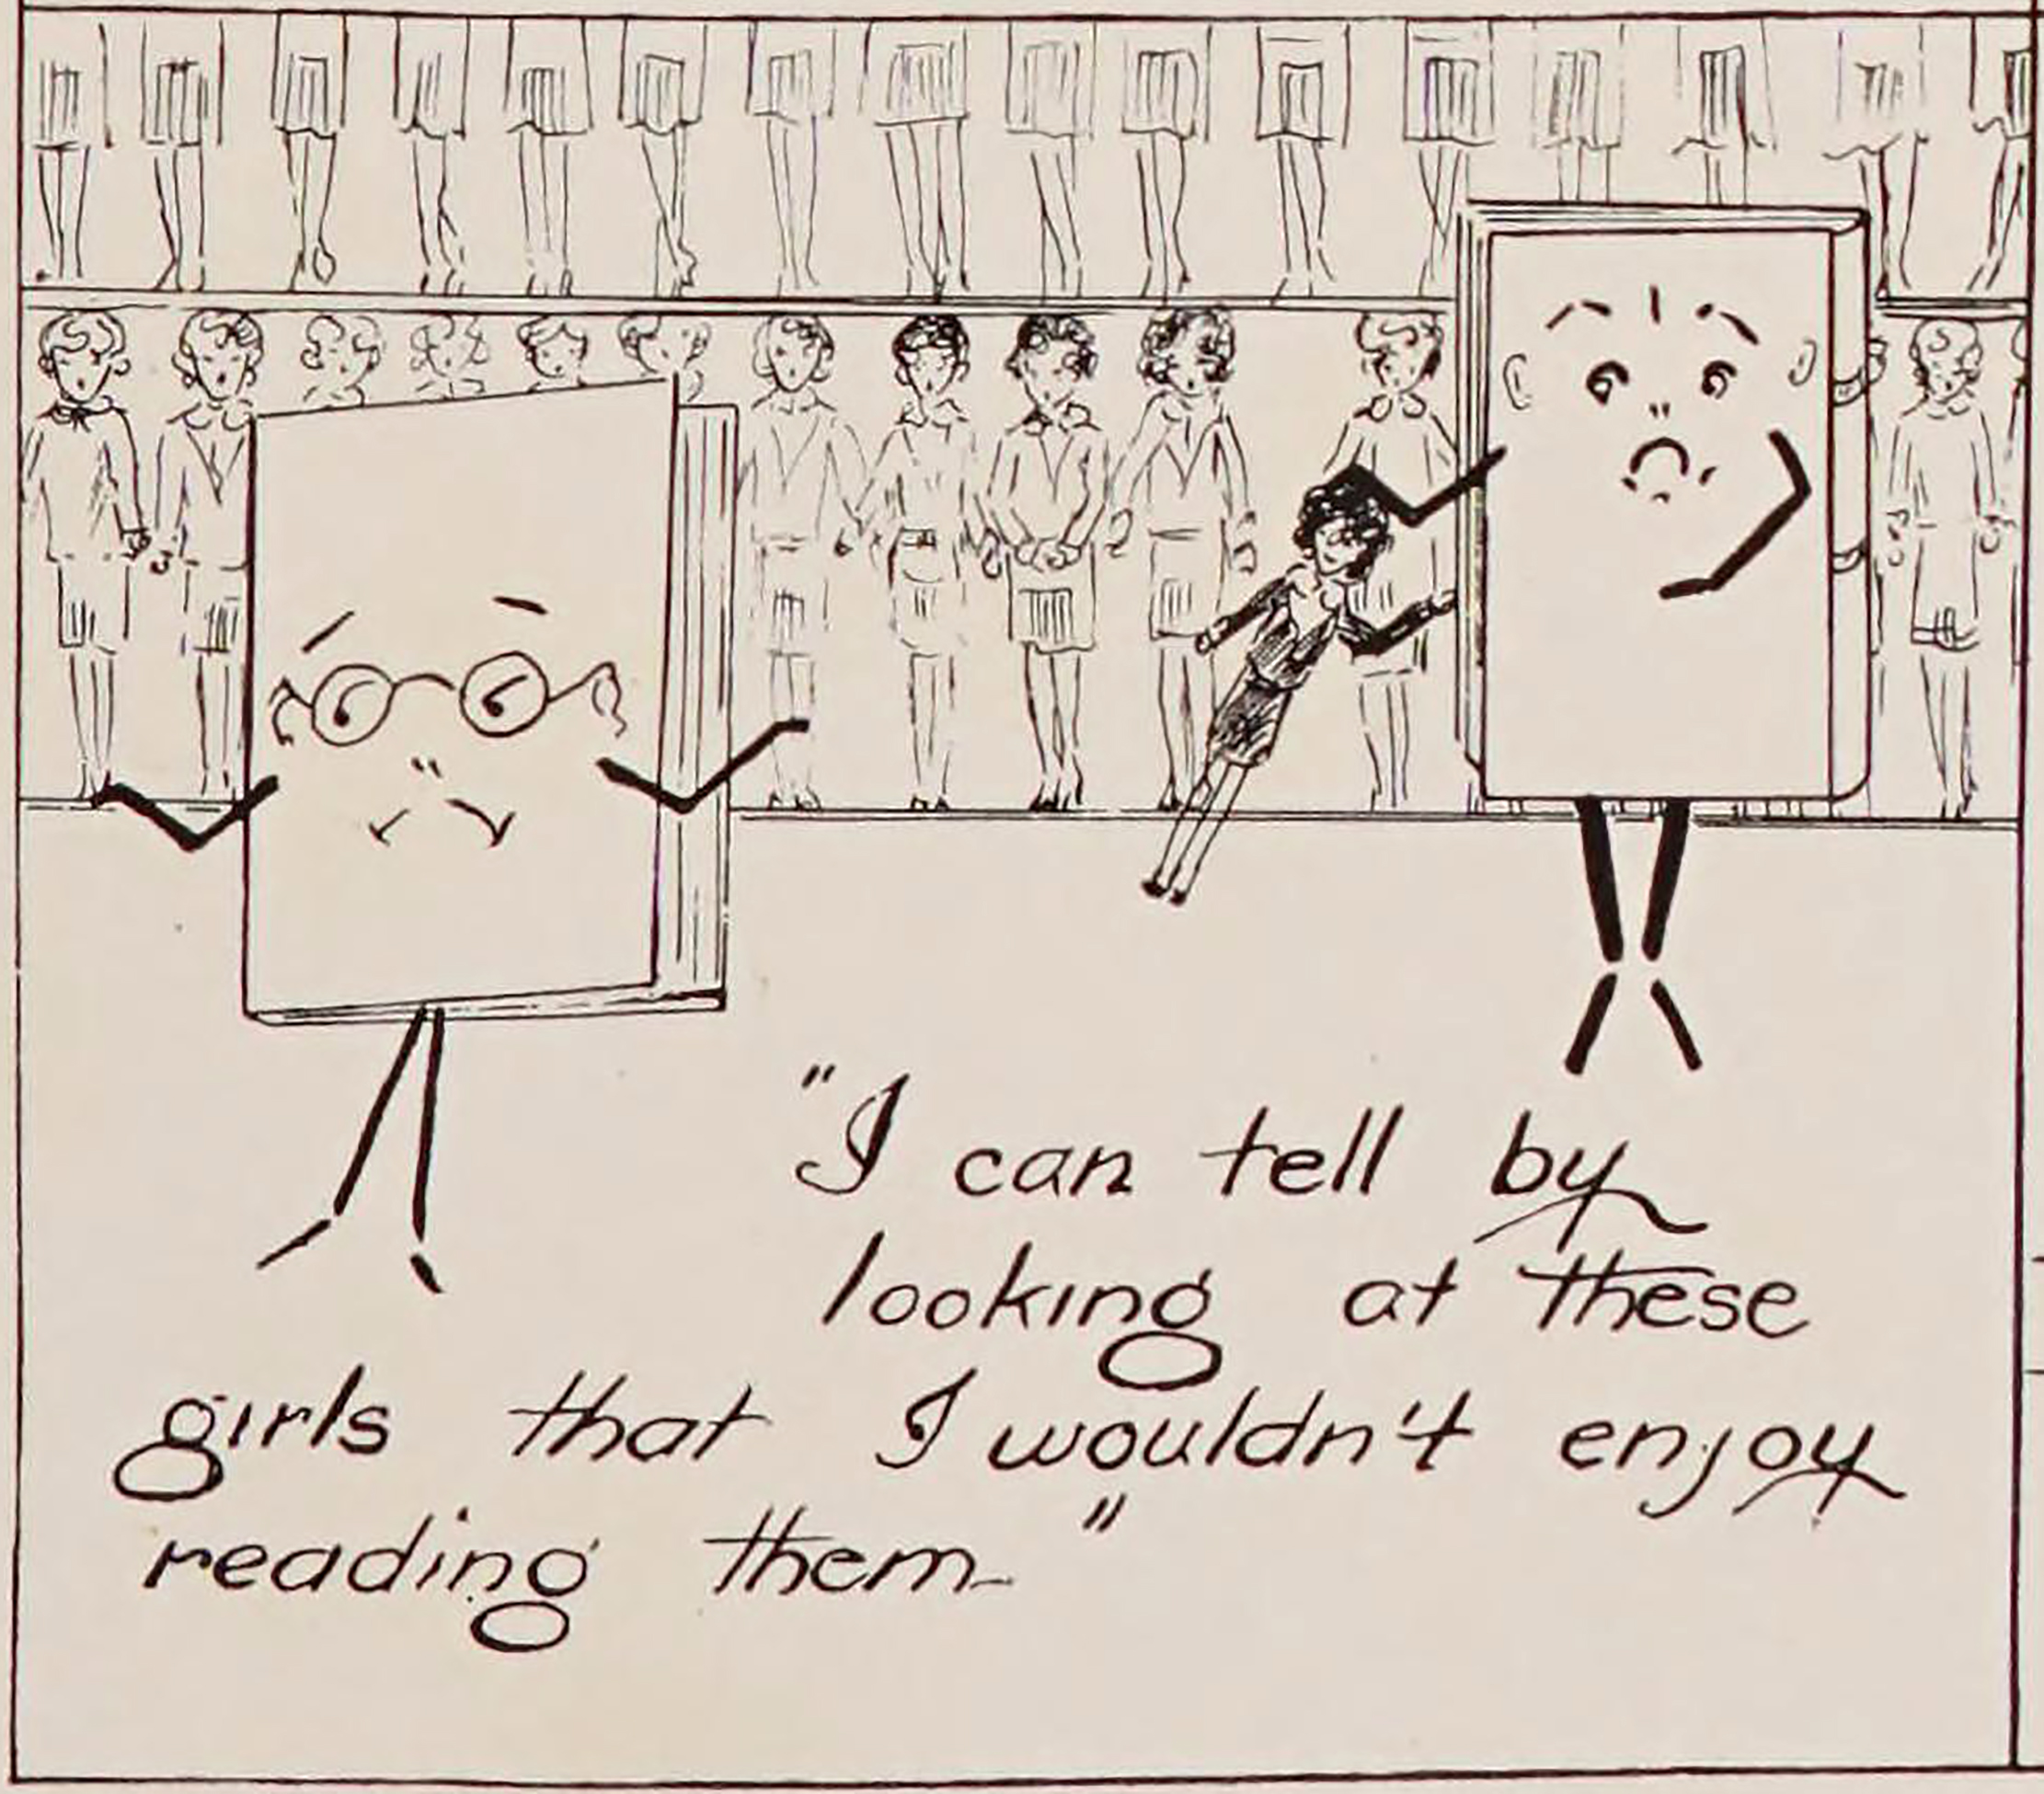 "I can tell by
looking at these
girls that I wouldn't enjoy
reading them"